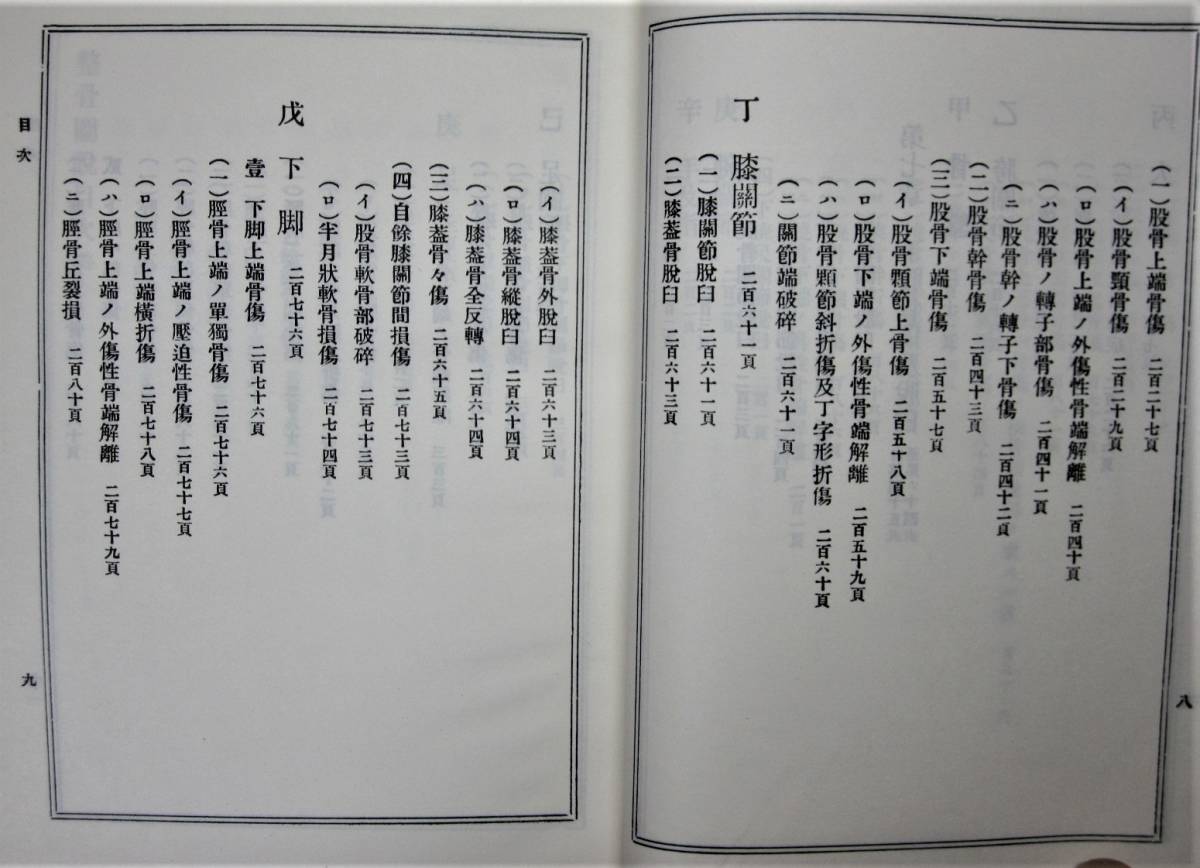 (一)股骨上端骨傷 二百二十七頁
(イ)股骨頸骨傷 二百二十九頁
(ロ)股骨上端ノ外傷性骨端解離 二百四十頁
(ハ)股骨ノ轉子部骨傷 二百四十一頁
(ニ)股骨幹ノ轉子下骨傷 二百四十二頁
(二)股骨幹骨傷 二百四十三頁
(三)股骨下端骨傷 二百五十七頁
(イ)股骨顆節上骨傷 二百五十八頁
(ロ)股骨下端ノ外傷性骨端解離 二百五十九頁
(ハ)股骨顆節斜折傷及丁字形折傷 二百六十頁
(ニ)關節端破碎 二百六十一頁
丁 膝關節 二百六十一頁
(一)膝關節脫臼 二百六十一頁
(二)膝蓋骨脫臼 二百六十三頁
八
(イ)膝蓋骨外脫臼 二百六十三頁
(ロ)膝蓋骨縱脫臼 二百六十四頁
(ハ)膝蓋骨全反轉 二百六十四頁
(三)膝蓋骨々傷 二百六十五頁
(四)自餘膝關節間損傷 二百七十三頁
(イ)股骨軟骨部破碎 二百七十三頁
(ロ)半月狀軟骨損傷 二百七十四頁
戊 下脚 二百七十六頁
壹 下脚上端骨傷 二百七十六頁
(一)脛骨上端ノ單獨骨傷 二百七十六頁
(イ)脛骨上端ノ壓迫性骨傷 二百七十七頁
(ロ)脛骨上端橫折傷 二百七十八頁
(ハ)脛骨上端ノ外傷性骨端解離 二百七十九頁
(ニ)脛骨丘裂損 二百八十頁
目次
九